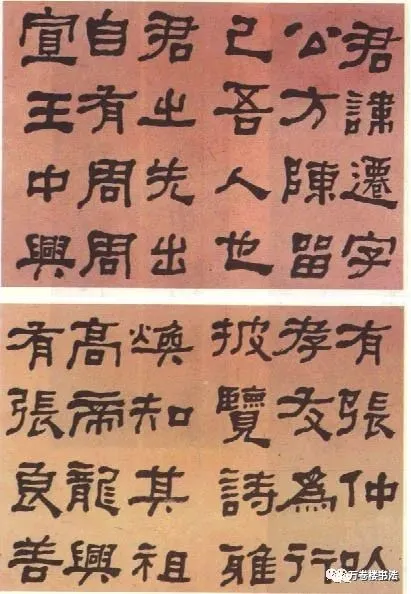 君諱遷字
公方陳留
己吾人也
君之先出
自有周周
宣王中興
有張仲以
孝友為行
披覽詩雅
煥知其祖
高帝龍興
有張良善
万卷楼书法